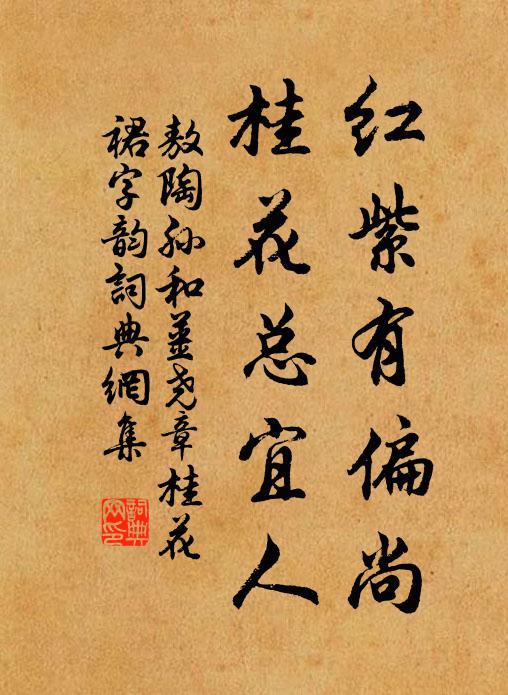 红紫有偏尚
桂花总宜人
敖陶孙和姜尧章桂花
裙字韵詞典網集
詞典
网印